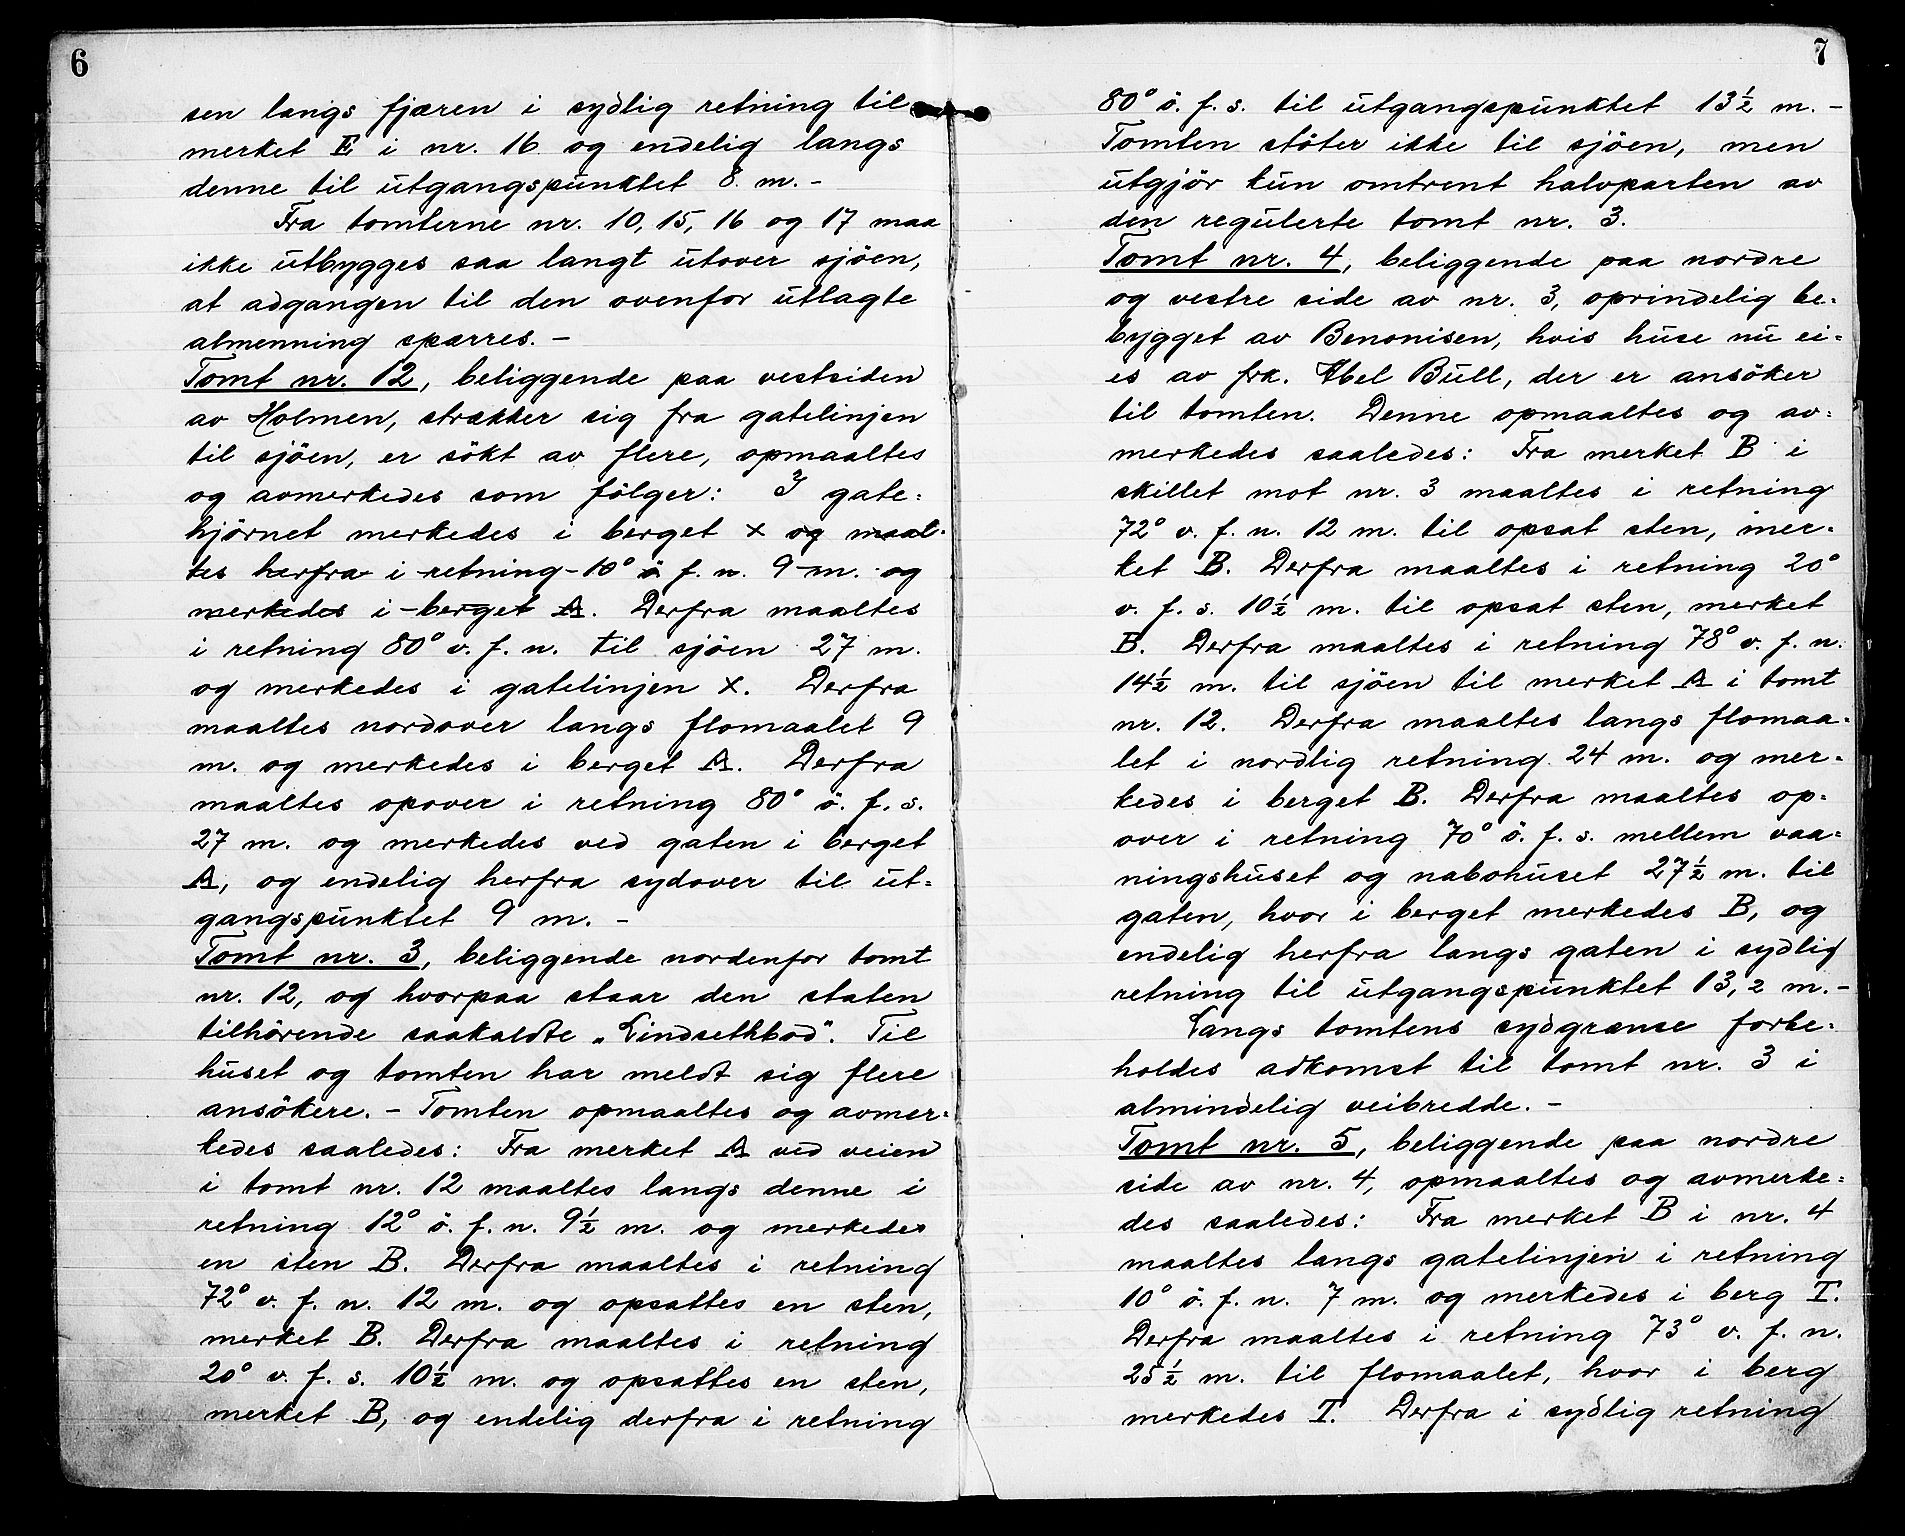 6
sen langs fjæren i sydlig retning til
merket E i nr. 16 og endelig langs
denne til utgangspunktet 8 m. –
Fra tomterne nr. 10, 15, 16 og 17 maa
ikke utbygges saa langt utover sjöen,
at adgangen til den ovenfor utlagte
almenning spærres. –
Tomt nr. 12, beliggende paa vestsiden
av Holmen, strækker sig fra gatelinjen
til sjöen, er sökt av flere, opmaaltes
og avmerkedes som fölger: I gate=
hjörnet merkedes i berget x og maal=
tes herfra i retning 10° ö f. n. 9 m. og
merkedes i berget A. Derfra maaltes
i retning 80° v. f. n. til sjöen 27 m.
og merkedes i gatelinjen x. Derfra
maaltes nordover langs flomaalet 9
m. og merkedes i berget A. Derfra
maaltes opover i retning 80° ö. f. s.
27 m. og merkedes ved gaten i berget
A, og endelig herfra sydover til ut=
gangspunktet 9 m. –
Tomt nr. 3, beliggende nordenfor tomt
nr. 12, og hvorpaa staar den staten
tilhörende saakaldte „Lindsethbod". Til
huset og tomten har meldt sig flere
ansökere. – Tomten opmaaltes og avmer=
kedes saaledes: Fra merket A ved veien
i tomt nr. 12 maaltes langs denne i
retning 12° ö. f. n. 9½ m. og merkedes
en sten B. Derfra maaltes i retning
72° v. f. n. 12 m. og opsattes en sten,
merket B. Derfra maaltes i retning
20° v. f. s. 10½ m. og opsattes en sten,
merket B, og endelig derfra i retning
7
80° ö. f. s. til utgangspunktet 13½ m. –
Tomten stöter ikke til sjöen, men
utgjör kun omtrent halvparten av
den regulerte tomt nr. 3.
Tomt nr. 4, beliggende paa nordre
og vestre side av nr. 3, oprindelig be=
bygget av Benonisen, hvis huse nu ei=
es av frk. Abel Bull, der er ansöker
til tomten. Denne opmaaltes og av=
merkedes saaledes: Fra merket B i
skillet mot nr. 3 maaltes i retning
72° v. f. n. 12 m. til opsat sten, mer=
ket B. Derfra maaltes i retning 20°
v. f. s. 10½ m. til opsat sten, merket
B. Derfra maaltes i retning 78° v. f. n.
14½ m. til sjöen til merket A i tomt
nr. 12. Derfra maaltes langs flomaa=
let i nordlig retning 24 m. og mer=
kedes i berget B. Derfra maaltes op=
over i retning 70° ö. f. s. mellem vaa=
ningshuset og nabohuset 27½ m. til
gaten, hvor i berget merkedes B, og
endelig herfra langs gaten i sydlig
retning til utgangspunktet 13,2 m. –
Langs tomtens sydgrænse forbe=
holdes adkomst til tomt nr. 3 i
almindelig veibredde. –
Tomt nr. 5, beliggende paa nordre
side av nr. 4, opmaaltes og avmerke=
des saaledes: Fra merket B i nr. 4
maaltes langs gatelinjen i retning
10° ö. f. n. 7 m. og merkedes i berg T.
Derfra maaltes i retning 73° v. f. n.
25½ m. til flomaalet, hvor i berg
merkedes T. Derfra i sydlig retning